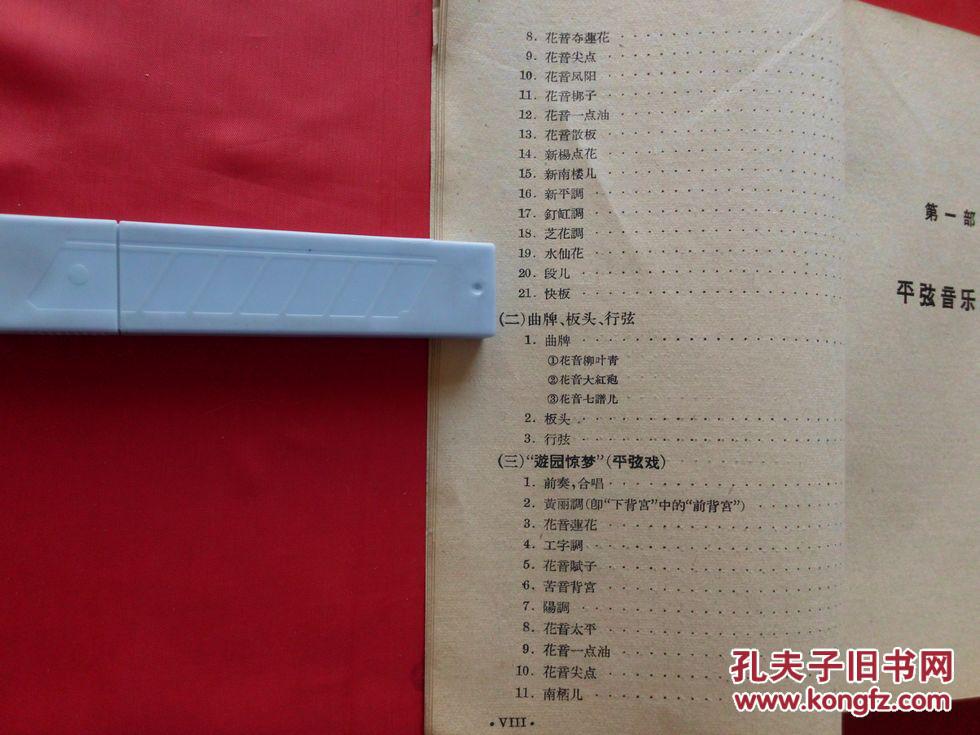 8. 花音夺蓮花
9. 花音尖点
10. 花音凤阳
11. 花音梆子
12. 花音一点油
13. 花音散板
14. 新楊点花
15. 新南楼儿
16. 新平調
17. 釘缸調
18. 芝花調
19. 水仙花
20. 段儿
21. 快板
(二)曲牌、板头、行弦
1. 曲牌
①花音柳叶青
②花音大紅袍
③花音七譜儿
2. 板头
3. 行弦
(三)“遊园惊梦”(平弦戏)
1. 前奏,合唱
2. 黃丽調(卽“下背宮”中的“前背宮”)
3. 花音蓮花
4. 工字調
5. 花音賦子
6. 苦音背宮
7. 陽調
8. 花音太平
9. 花音一点油
10. 花音尖点
11. 南柄儿
• VIII •
第一部
平弦音乐
孔夫子旧书网
www.kongfz.com